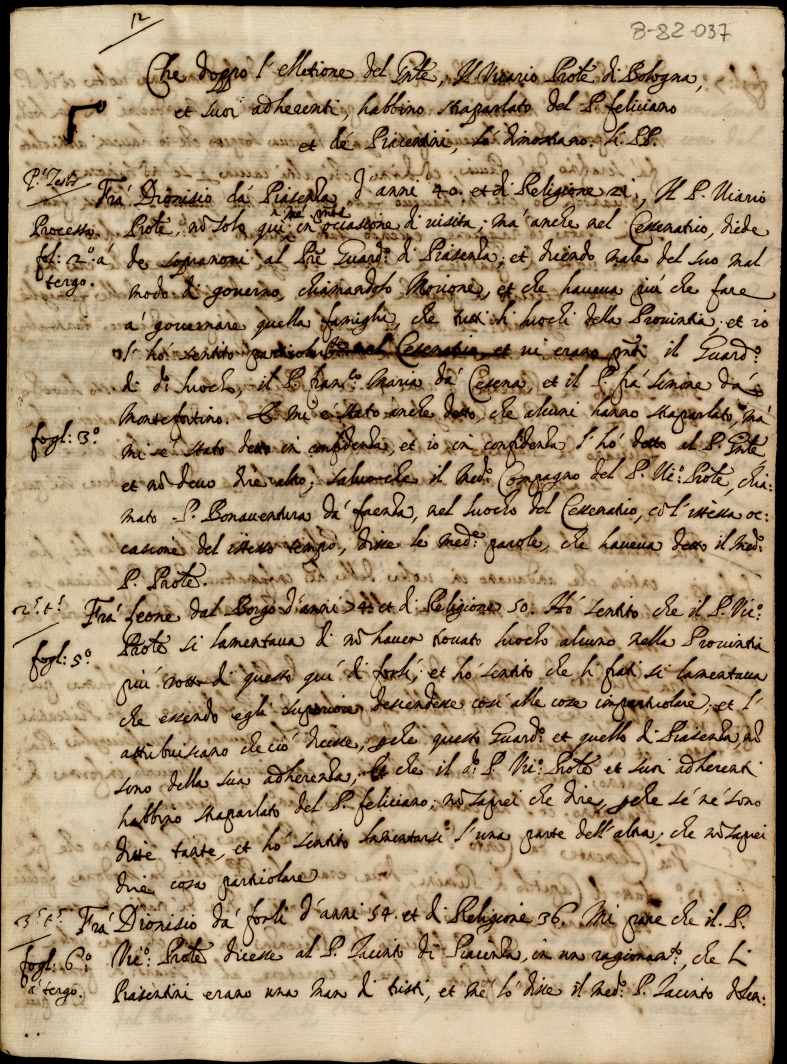 12
8-82-037
Che doppo l'elletione del Pnte, Il Vicario Prole di Bologna,
et suoi adherenti, habbino straparlato del P. feliciano
et de Piacentini, lo dimostrano li PP.
P.º Testº Frà Dionisio da Piasenza d'anni 40. et di Religione 21., Il P. Vicario
Processo. Prole, nõ solo qui in occasione di visita; ma anche nel Cessenatico, diede
fol: 2º à de sopranomi al Pre Guardº di Piasenza, et dicendo male del suo mal
tergo. modo di governo, chiamandolo Movione, et che haveva più che fare
a governare quella famiglia, che tutti li luochi della Provintia. et io
l'hò sentito et vi erano pnti il Guardº
di dº luocho, il P. franco Maria dà Cesena, et il P. frà simone dà
Montefortino. E mi è stato anche detto, che alcuni hanno straparlato, mà
fogl: 3º mi s'è stato detto in confidenza, et io in confidenza l'hò detto al P. Pnte
et nõ devo dire altro; salvo che il medº Compagno del P. Vicº: Prole, chia:
mato P. Bonaventura dà faenza, nel luocho del Cessenatico, cõ l'istessa oc:
casione del istesso tempo, disse le medº parole, che haveva detto il medº:
P. Prole.
2º: tº: Frà Leone dal Borgo d'anni 74. et di Religione 50. Hò sentito che il P. Vicº:
Prole si lamentava di nõ haver trovato luocho alcuno nella Provintia
fogl: 5º più rotto di questo quì di forlì; et hò sentito che li frati si lamentava
che essendo egli superiore descendesse così alle cose imparticolare, et l'
attribuiscano che ciò dicesse, pche questo Guardº et quello di Piasenza, nõ
sono della sua adherenza; Et che il dº P. Vicº: Prole et suoi adherenti
habbino straparlato del P. feliciano; nõ saprei che dire, pche se ne sono
ditte tante, et hò sentito lamentarsi l'una parte dell'altra; che nõ saprei
dire cosa particolare
3º: tº: Frà Dionisio dà forlì d'anni 54. et di Religione 36. Mi pare che il P.
fogl: 6º: Vicº: Prole dicesse al P. Iacinto di Piacenza, in un ragionamtº, che li
à tergo. Piasentini erano una man di tristi, et me lo disse il medº P. Iacinto dolen: